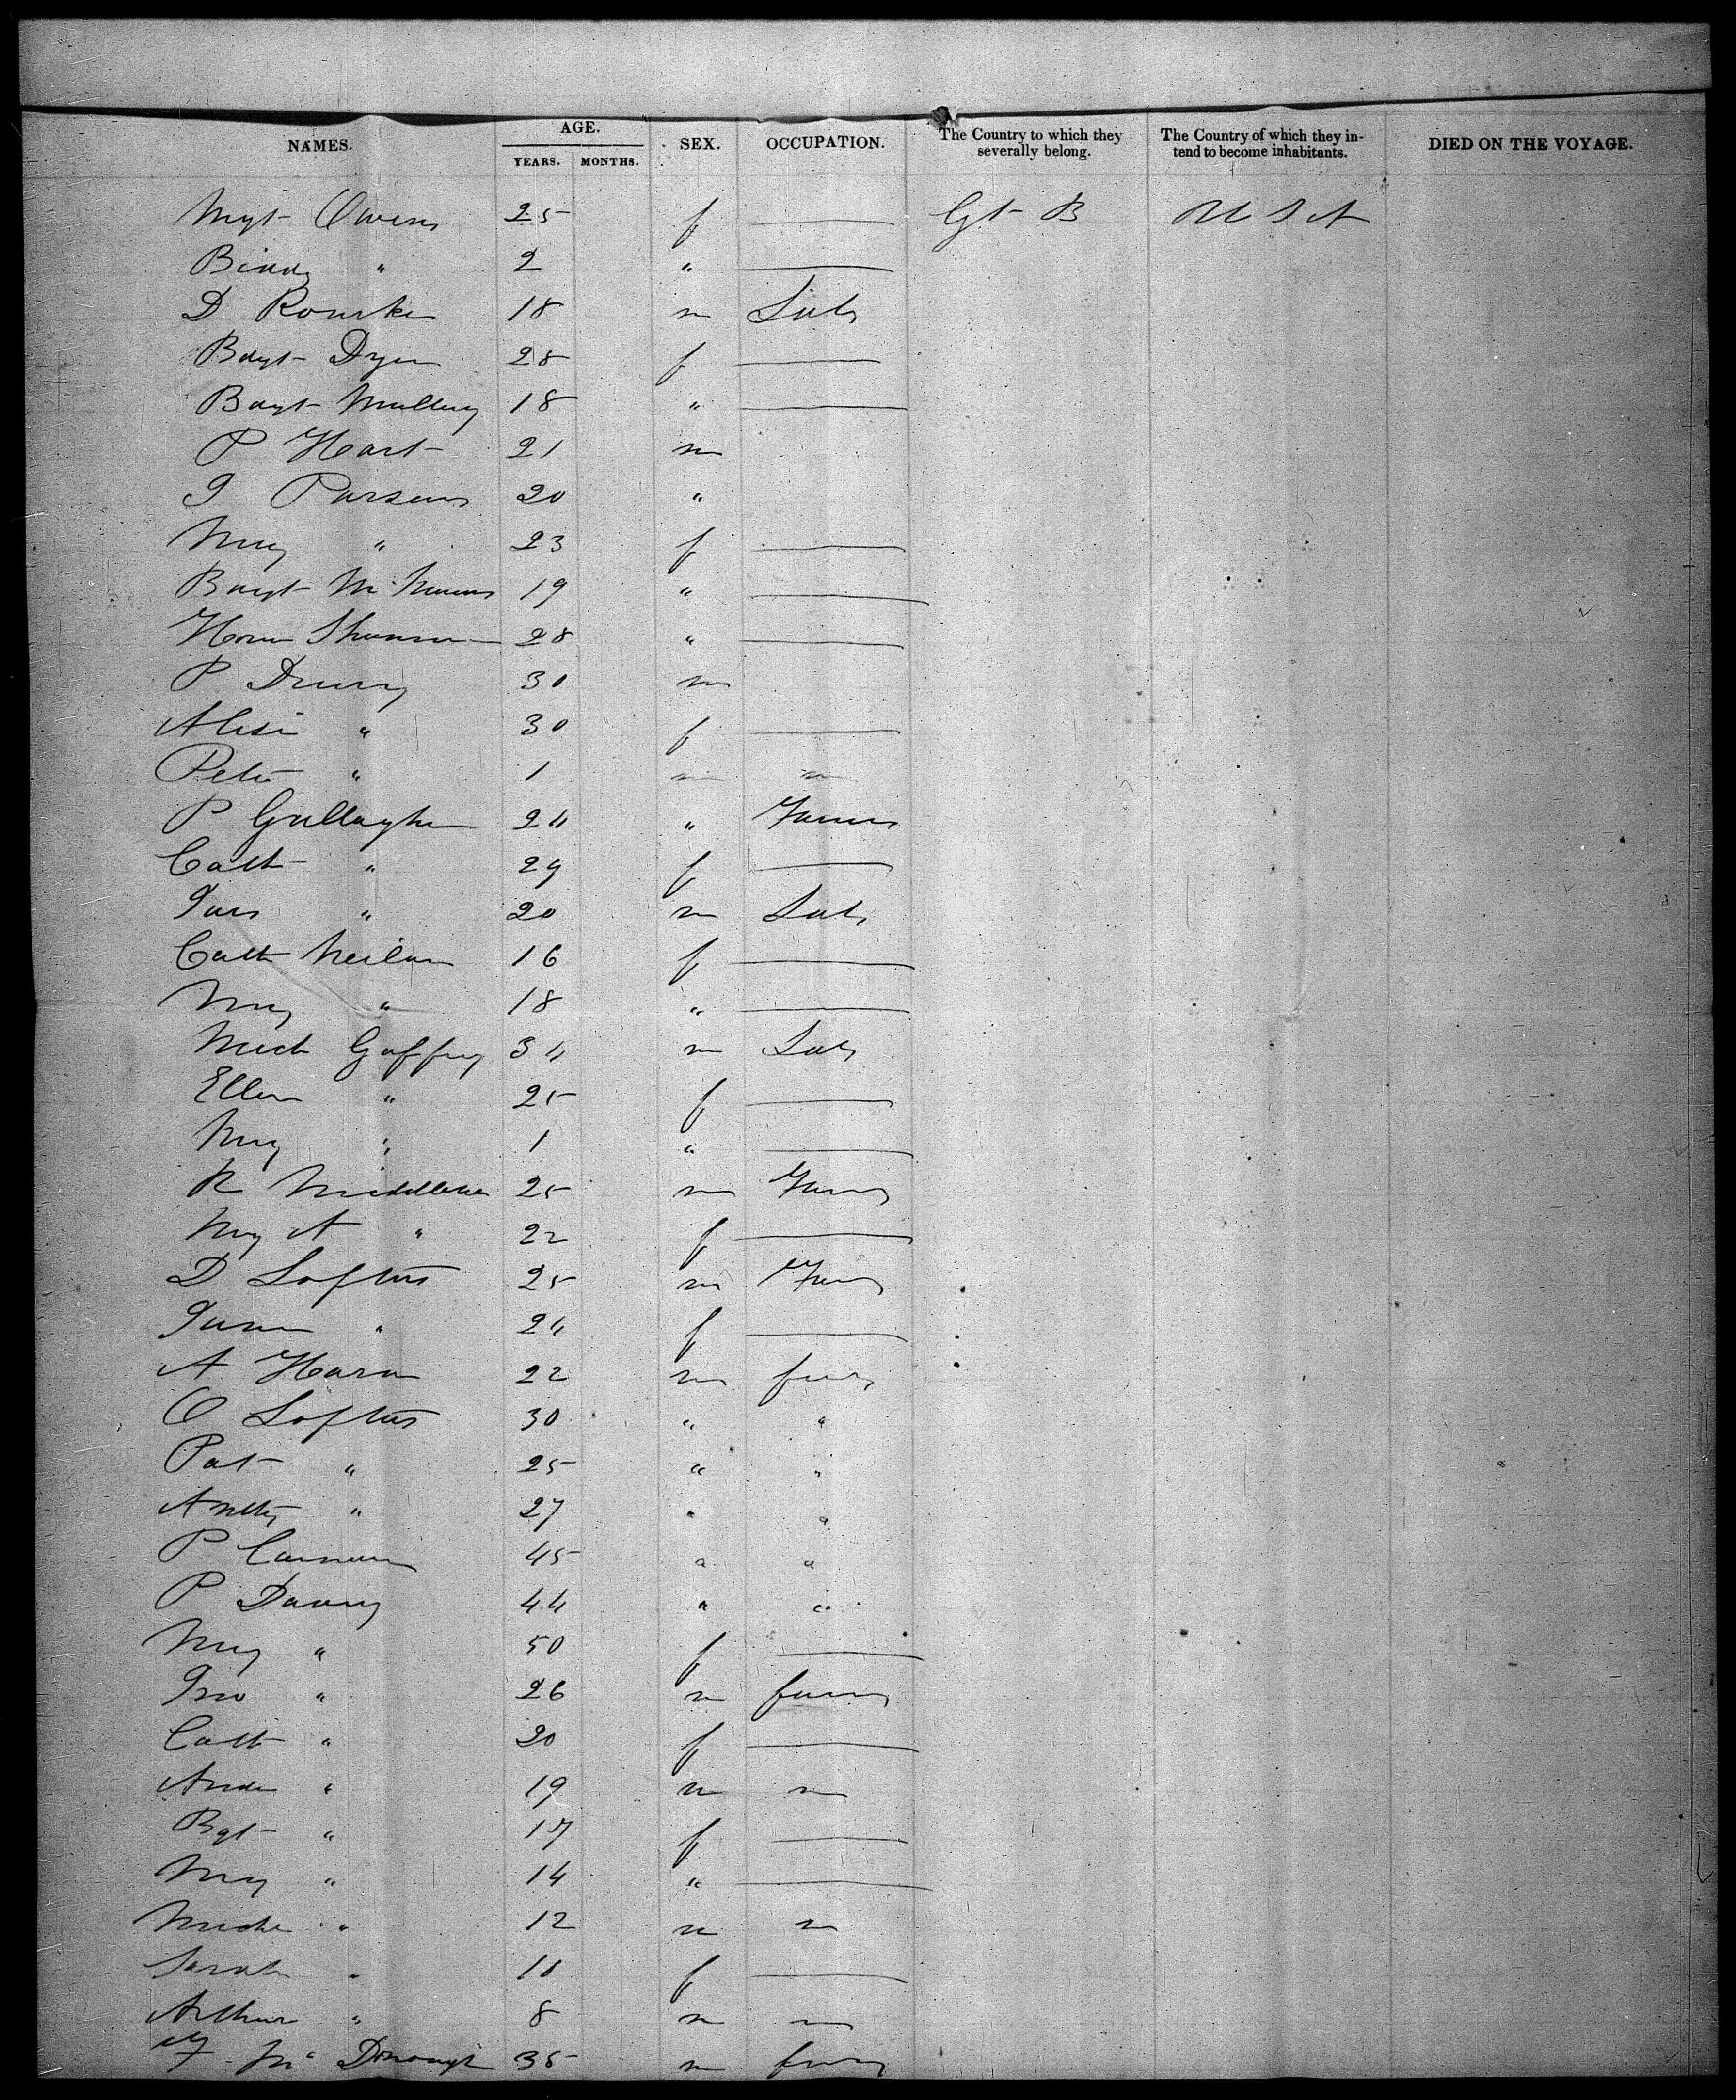 NAMES. AGE. SEX. OCCUPATION. The Country to which they severally belong. The Country of which they intend to become inhabitants. DIED ON THE VOYAGE.
YEARS. MONTHS.
Mgt Owens 25 f — Gt B U S A
Biddy " 2 " —
D Rourke 18 m Lab
Bdgt Dyer 28 f —
Bdgt 18 " —
P Hart 21 m
J Parsons 20 "
Mary " 23 f —
Bdgt 19 " —
28 " —
P Drury 30 m
30 f —
Peter " 1 m
P Gallagher 24 " Farmer
Cath " 29 f —
Jas " 20 m Lab
Cath Neilan 16 f —
Mary " 18 " —
Mich Gaffney 34 m Lab
Ellen " 25 f —
Mary " 1 " —
R Middleton 25 m Farmer
Mary A " 22 f —
D Loftus 25 m Farmer
24 f —
A Haran 22 m farmer
O Loftus 30 " "
Pat " 25 " "
Anthy " 27 " "
P 45 " "
P 44 " "
Mary " 50 f —
Jno " 26 m farmer
Cath " 20 f —
Andw " 19 m
Bgt " 17 f —
Mary " 14 " —
Miche " 12 m
Sarah " 10 f —
Arthur " 8 m
Mc Donough 35 m farmer